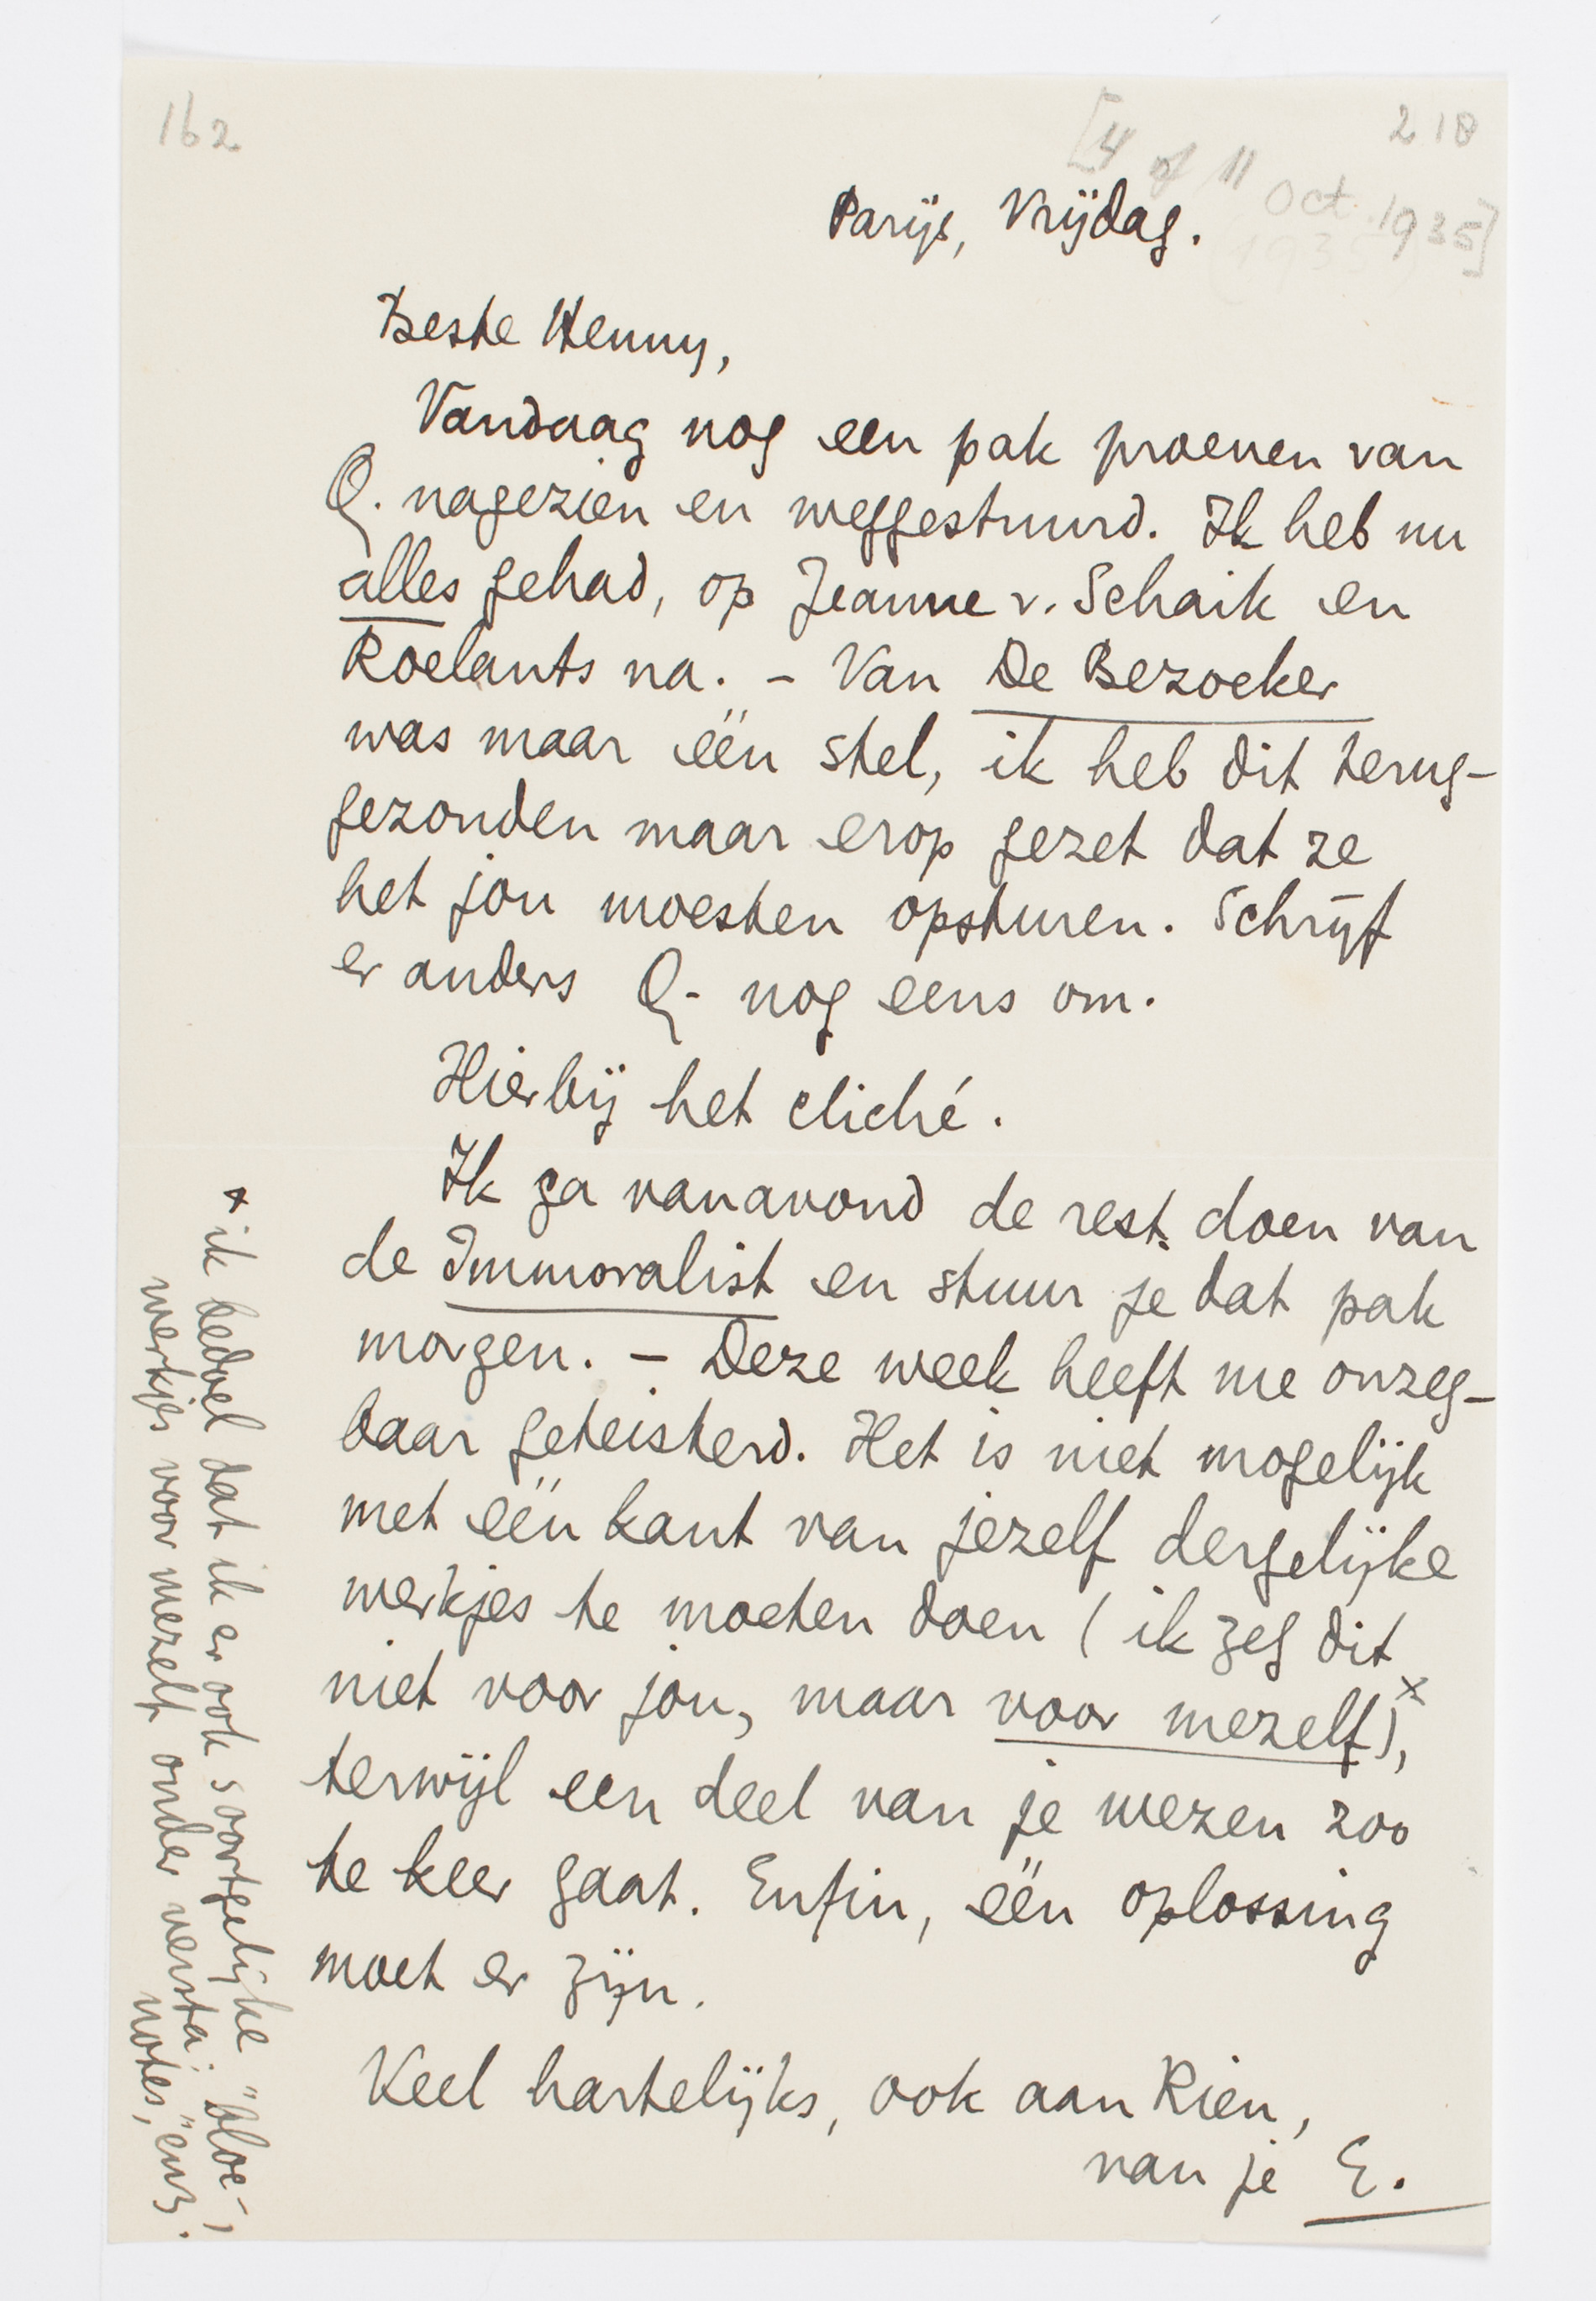 162
218
[4 of 11 Oct. 1935]
(1935)
Parijs, Vrijdag.
Beste Henny,
Vandaag nog een pak proeven van
Q. nagezien en weggestuurd. Ik heb nu
alles gehad, op Jeanne v. Schaik en
Roelants na. - Van De Bezoeker
was maar één stel, ik heb dit terug-
gezonden maar erop gezet dat ze
het jou moesten opsturen. Schrijf
er anders Q. nog eens om.
Hierbij het cliché.
Ik ga vanavond de rest doen van
de Immoralist en stuur je dat pak
morgen. - Deze week heeft me onzeg-
baar geteisterd. Het is niet mogelijk
met één kant van jezelf dergelijke
werkjes te moeten doen (ik zeg dit
niet voor jou, maar voor mezelf)ˣ,
terwijl een deel van je wezen zoo
te keer gaat. Enfin, één oplossing
moet er zijn.
Veel hartelijks, ook aan Rien,
van je E.
x ik bedoel dat ik er ook soortgelijke "bloc-,
werkjes voor mezelf onder versta:
notes," enz.